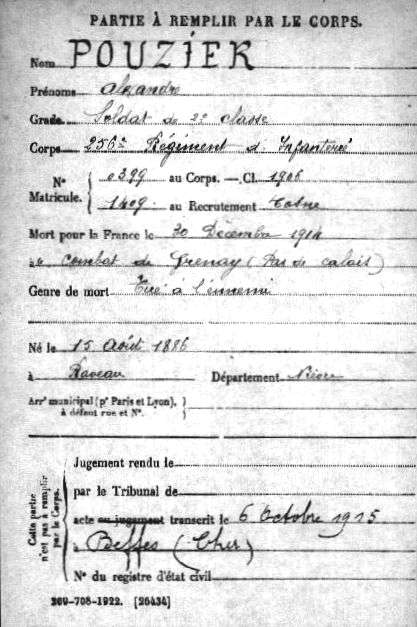 PARTIE À REMPLIR PAR LE CORPS.
Nom POUZIER
Prénoms Alexandre
Grade Soldat de 2e classe
Corps 256e Régiment d'Infanterie
N° Matricule. 0399 au Corps. — Cl. 1906
1409 au Recrutement Cosne
Mort pour la France le 30 Décembre 1914
à combat de Grenay (Pas de Calais)
Genre de mort Tué à l'ennemi
Né le 15 Août 1886
à Raveau Département Nièvre
Arrt municipal (pr Paris et Lyon),
à défaut rue et N°.
Cette partie n'est pas à remplir par le Corps.
Jugement rendu le
par le Tribunal de
acte ou jugement transcrit le 6 Octobre 1915
à Beffes (Cher)
N° du registre d'état civil
269-708-1922. [26434]